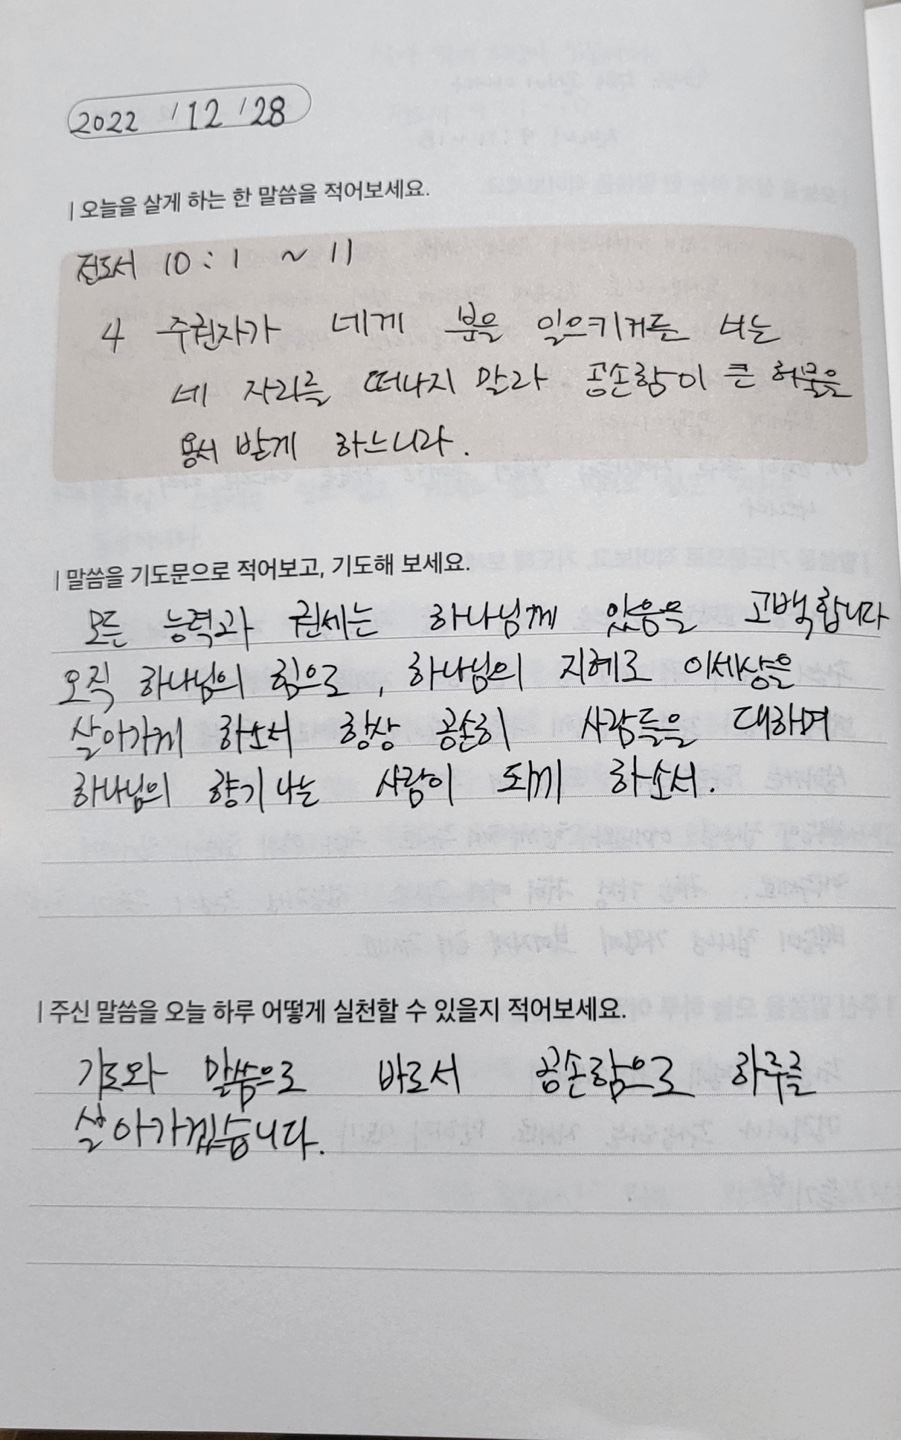 2022 / 12 / 28
| 오늘을 살게 하는 한 말씀을 적어보세요.
전도서 10 : 1 ~ 11
4 주권자가 네게 분을 일으키거든 너는
네 자리를 떠나지 말라 공손함이 큰 허물을
용서 받게 하느니라.
| 말씀을 기도문으로 적어보고, 기도해 보세요.
모든 능력과 권세는 하나님께 있음을 고백합니다
오직 하나님의 힘으로, 하나님의 지혜로 이세상을
살아가게 하소서 항상 공손히 사람들을 대하며
하나님의 향기 나는 사람이 되게 하소서.
| 주신 말씀을 오늘 하루 어떻게 실천할 수 있을지 적어보세요.
기도와 말씀으로 바로서 공손함으로 하루를
살아가겠습니다.